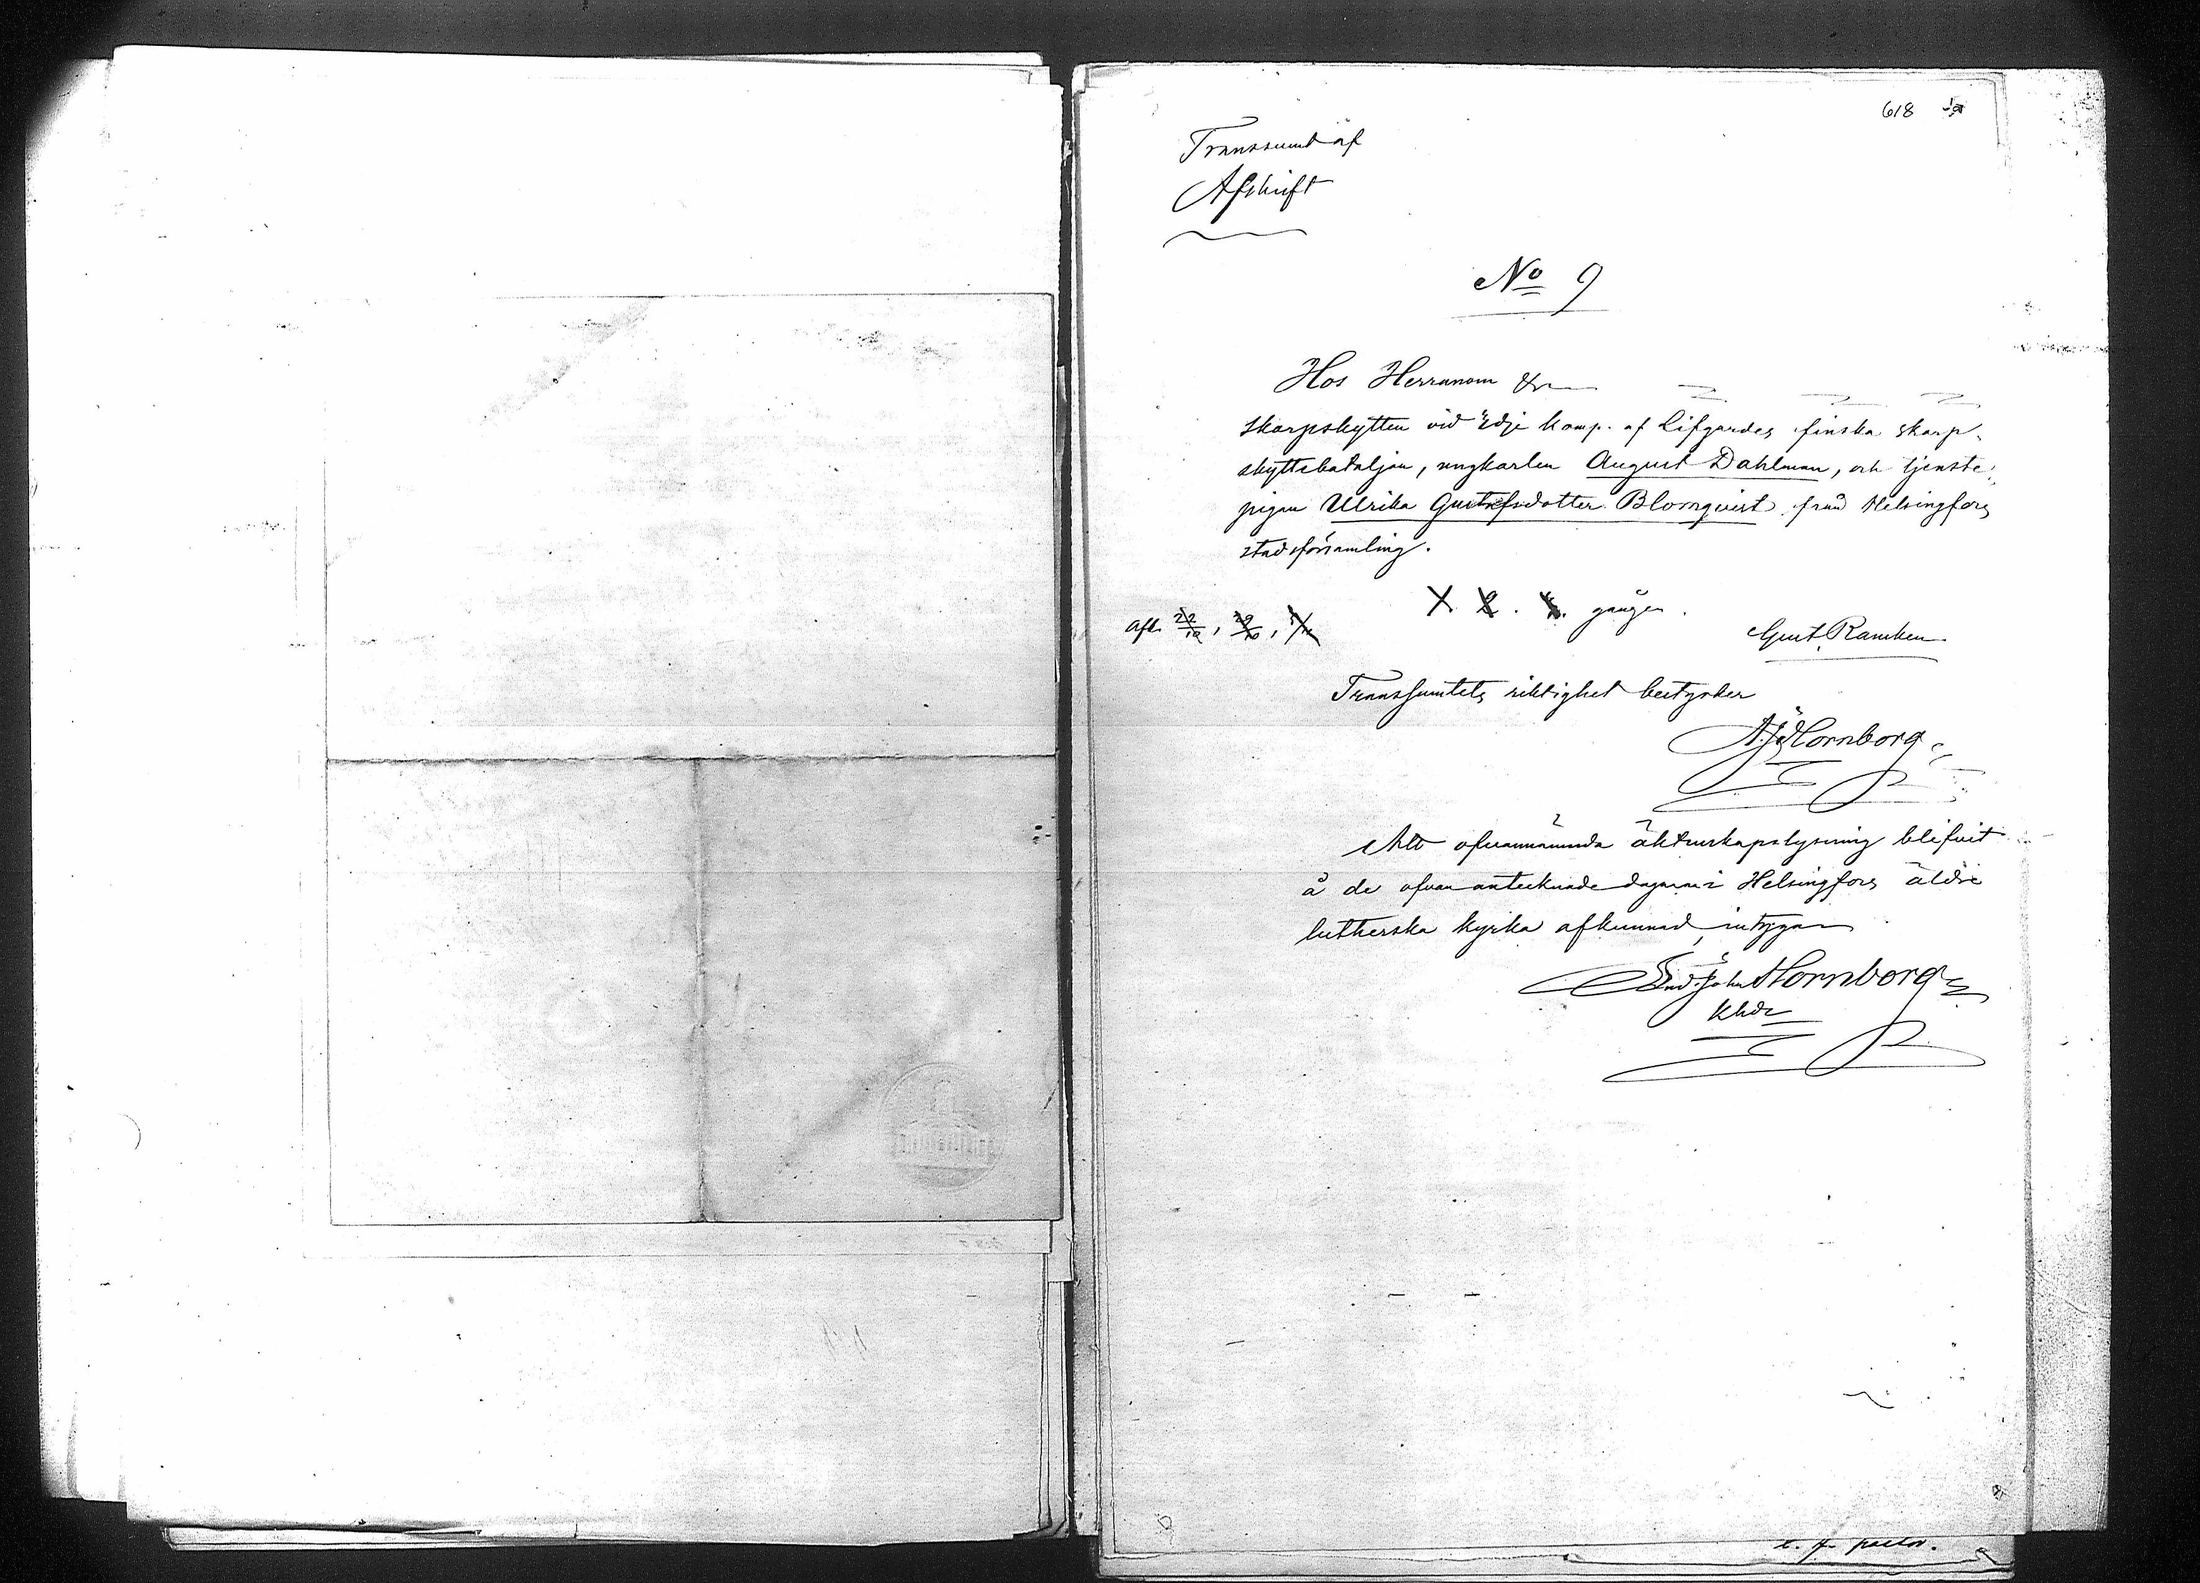 618
Transsumt af
Afskrift
No 9
Hos Herranom &c
skarpskytten vid 2dje komp. af Lifgardes finska skarp-
skyttebataljon, ungkarlen August Dahlman, och tjenste-
pigan Ulrika Gustafsdotter Blomqvist från Helsingfors
stadsförsamling.
1. 2. 3. gången.
Afk. 22/10, 29/10, 5/11
Gust. Rancken
Transsumtets riktighet bestyrker
A. J. Hornborg
Att ofvannämnda äktenskapslysning blifvit
å de ofvan antecknade dagarne i Helsingfors äldre
lutherska kyrka afkunnad, intygar
And. Joh. Hornborg
t. f. pastor.